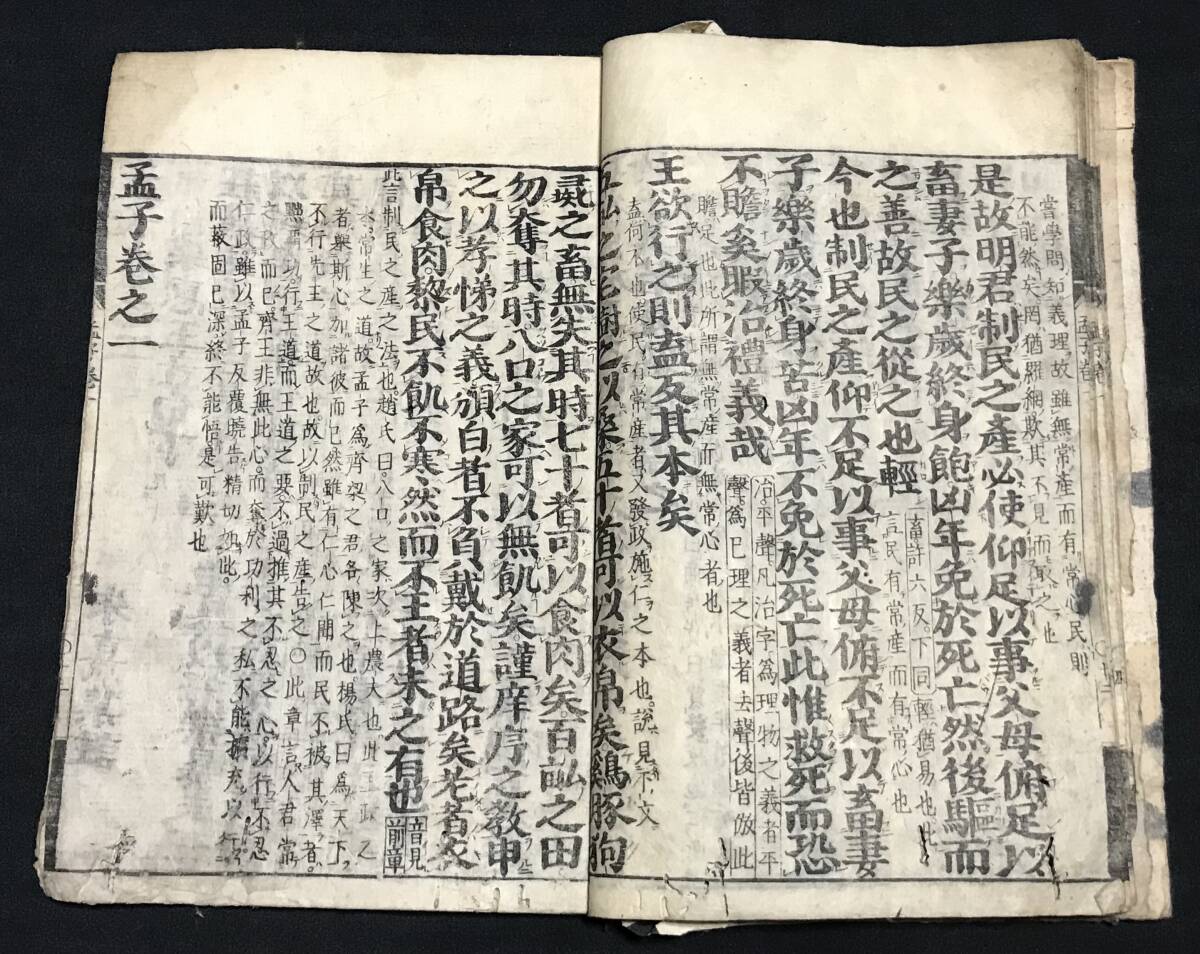 嘗學問知義理故雖無常產而有常心民則
不能然矣罔猶羅網欺其不見而取之也
是故明君制民之產必使仰足以事父母俯足以
畜妻子樂歲終身飽凶年免於死亡然後驅而
之善故民之從之也輕
畜許六反下同輕猶易也此
言民有常產而有常心也
今也制民之產仰不足以事父母俯不足以畜妻
子樂歲終身苦凶年不免於死亡此惟救死而恐
不贍奚暇治禮義哉
治平聲凡治字為理物之義者平
聲為已理之義者去聲後皆倣此
贍足也此所謂無常產而無常心者也
王欲行之則盍反其本矣
盍何不也使民有常產者又發政施仁之本也說見下文
五畝之宅樹之以桑五十者可以衣帛矣鷄豚狗
彘之畜無失其時七十者可以食肉矣百畝之田
勿奪其時八口之家可以無飢矣謹庠序之教申
之以孝悌之義頒白者不負戴於道路矣老者衣
帛食肉黎民不飢不寒然而不王者未之有也
音見
前章
此言制民之產之法也趙氏曰八口之家次上農夫也此王政之
本常生之道故孟子為齊梁之君各陳之也楊氏曰為天下
者舉斯心加諸彼而已然雖有仁心仁聞而民不被其澤者
不行先王之道故也故以制民之產告之○此章言人君當
黜霸功行王道而王道之要不過推其不忍之心以行不忍
之政而已齊王非無此心而奪於功利之私不能擴充以行
仁政雖以孟子反覆曉告精切如此
而蔽固已深終不能悟是可歎也
孟子卷之一